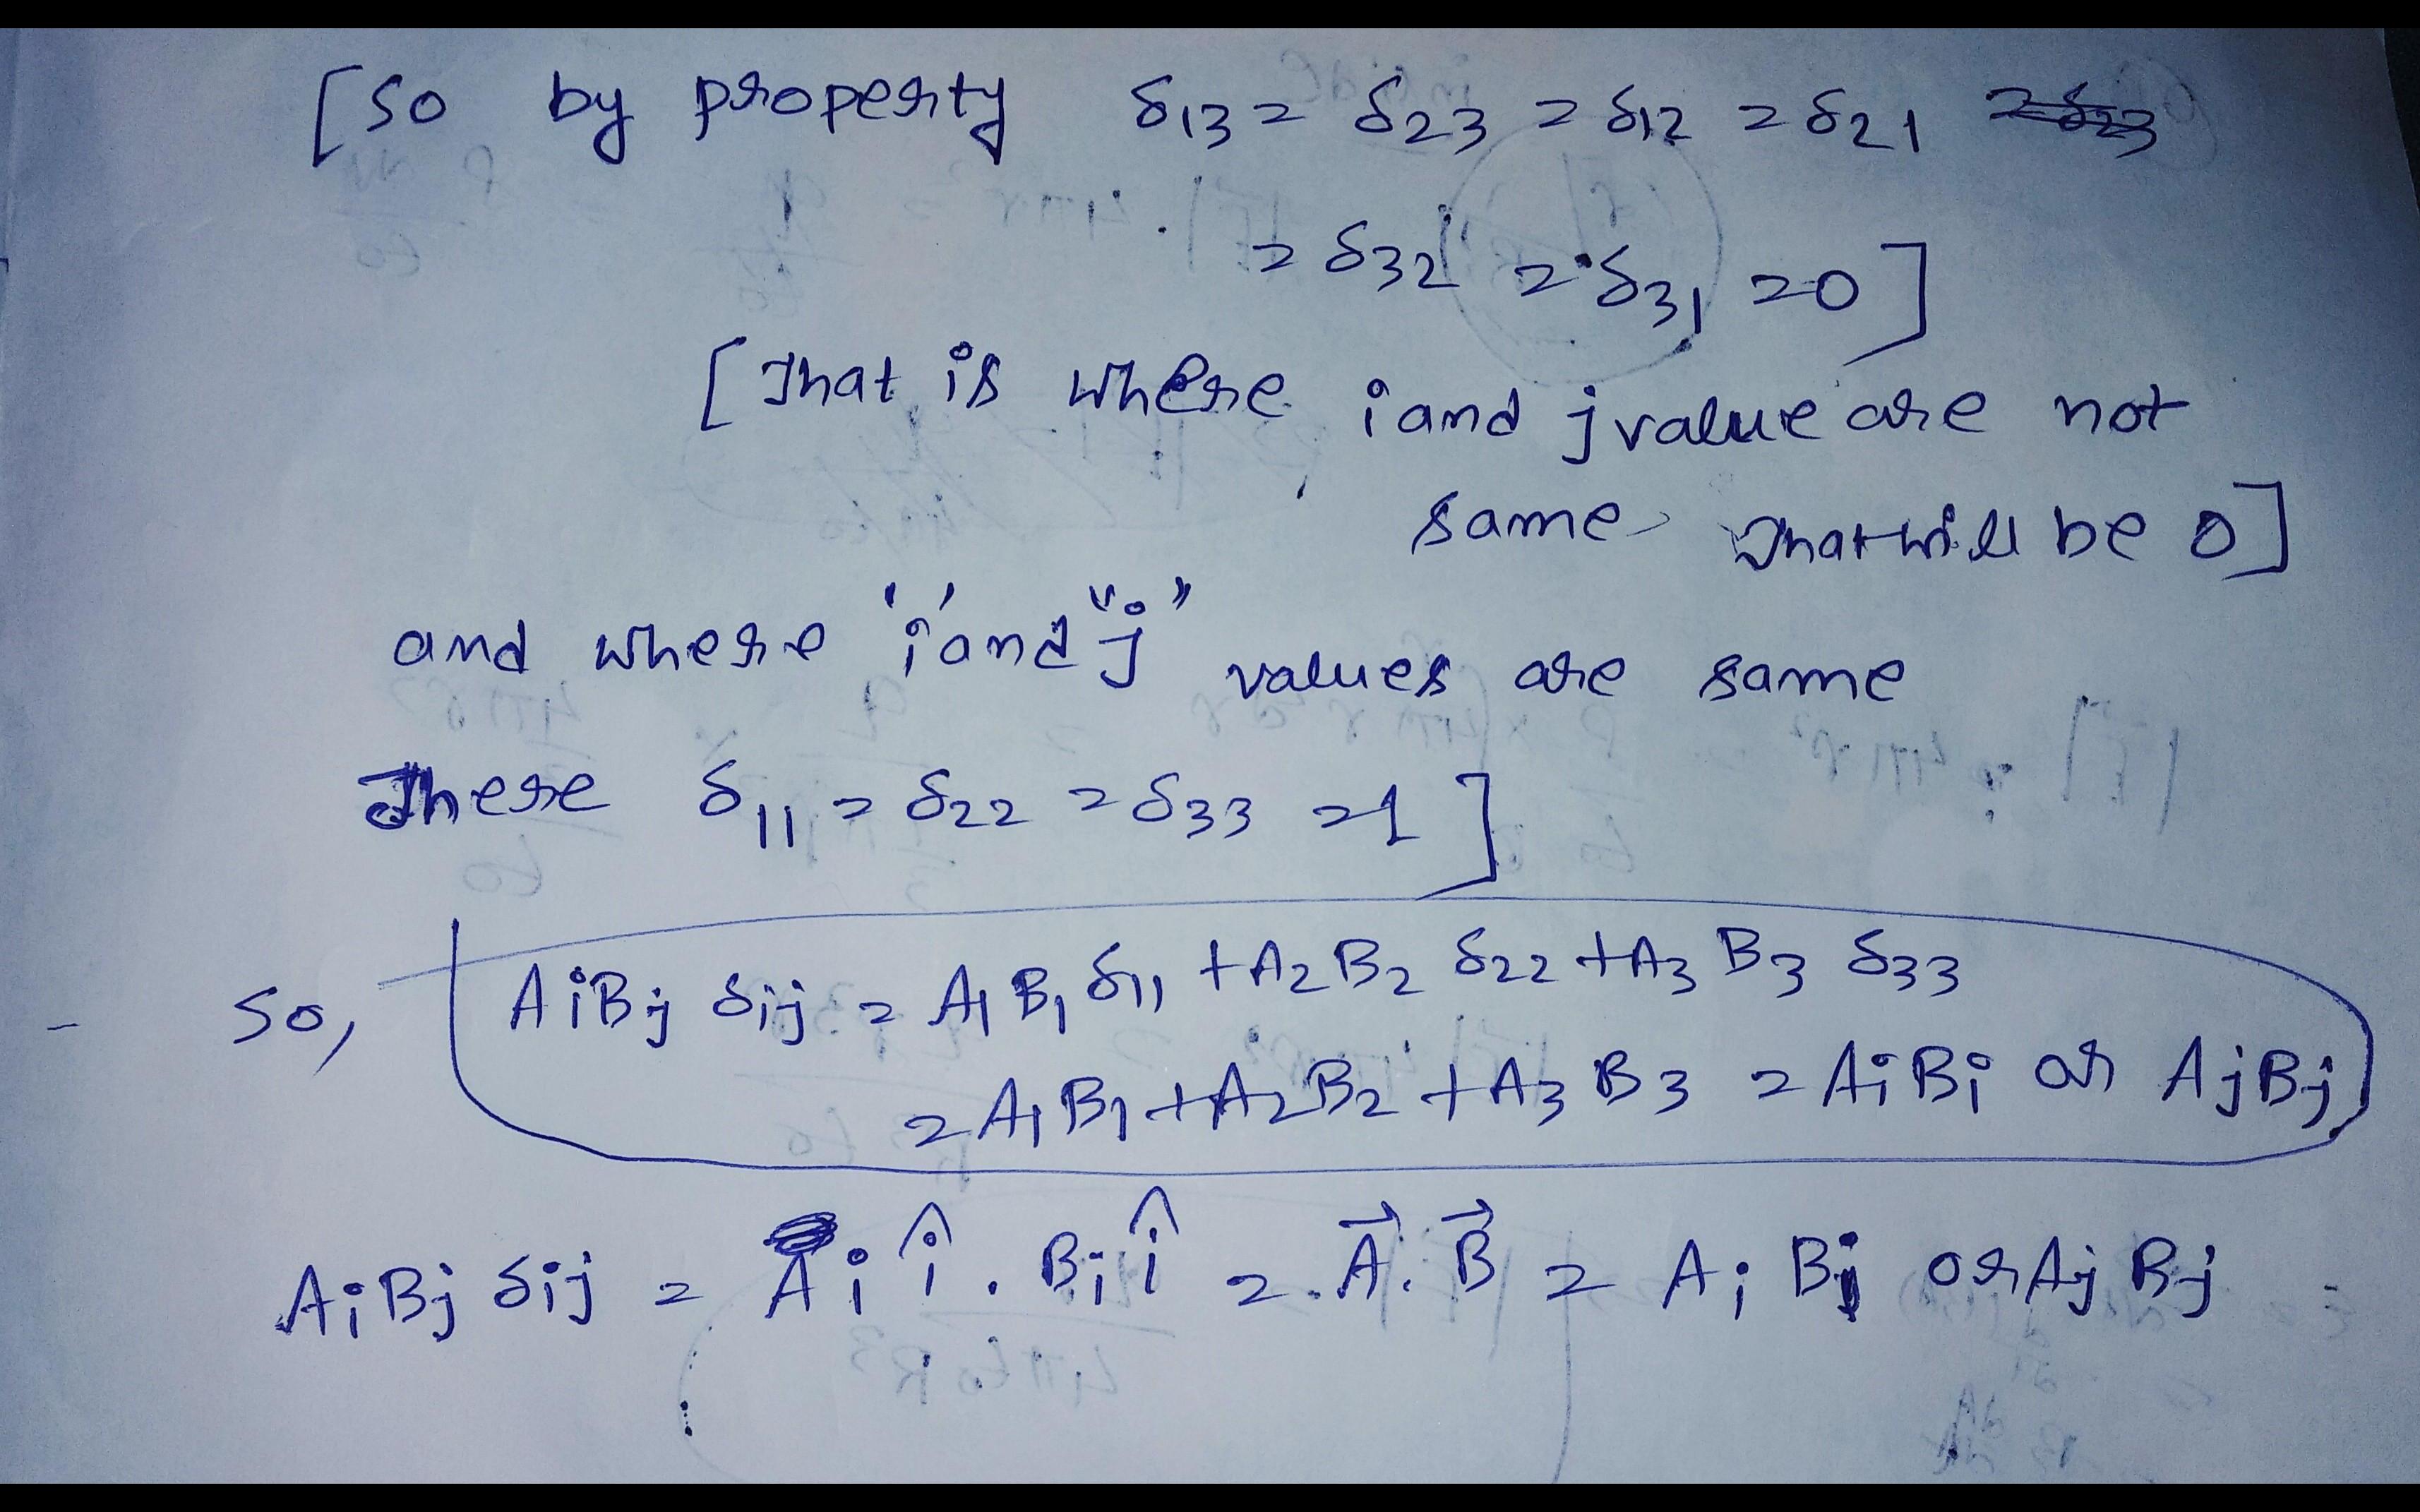 [So by property δ13 = δ23 = δ12 = δ21 = δ23
= δ32 = δ31 = 0]
[That is where i and j value are not
same That will be 0]
and where 'i' and "j" values are same
There δ11 = δ22 = δ33 = 1]
So, AiBj δij = A1B1 δ11 + A2B2 δ22 + A3B3 δ33
= A1B1 + A2B2 + A3B3 = AiBi or AjBj
AiBj δij = Ai î . Bi î = A⃗ . B⃗ = Ai Bi or Aj Bj